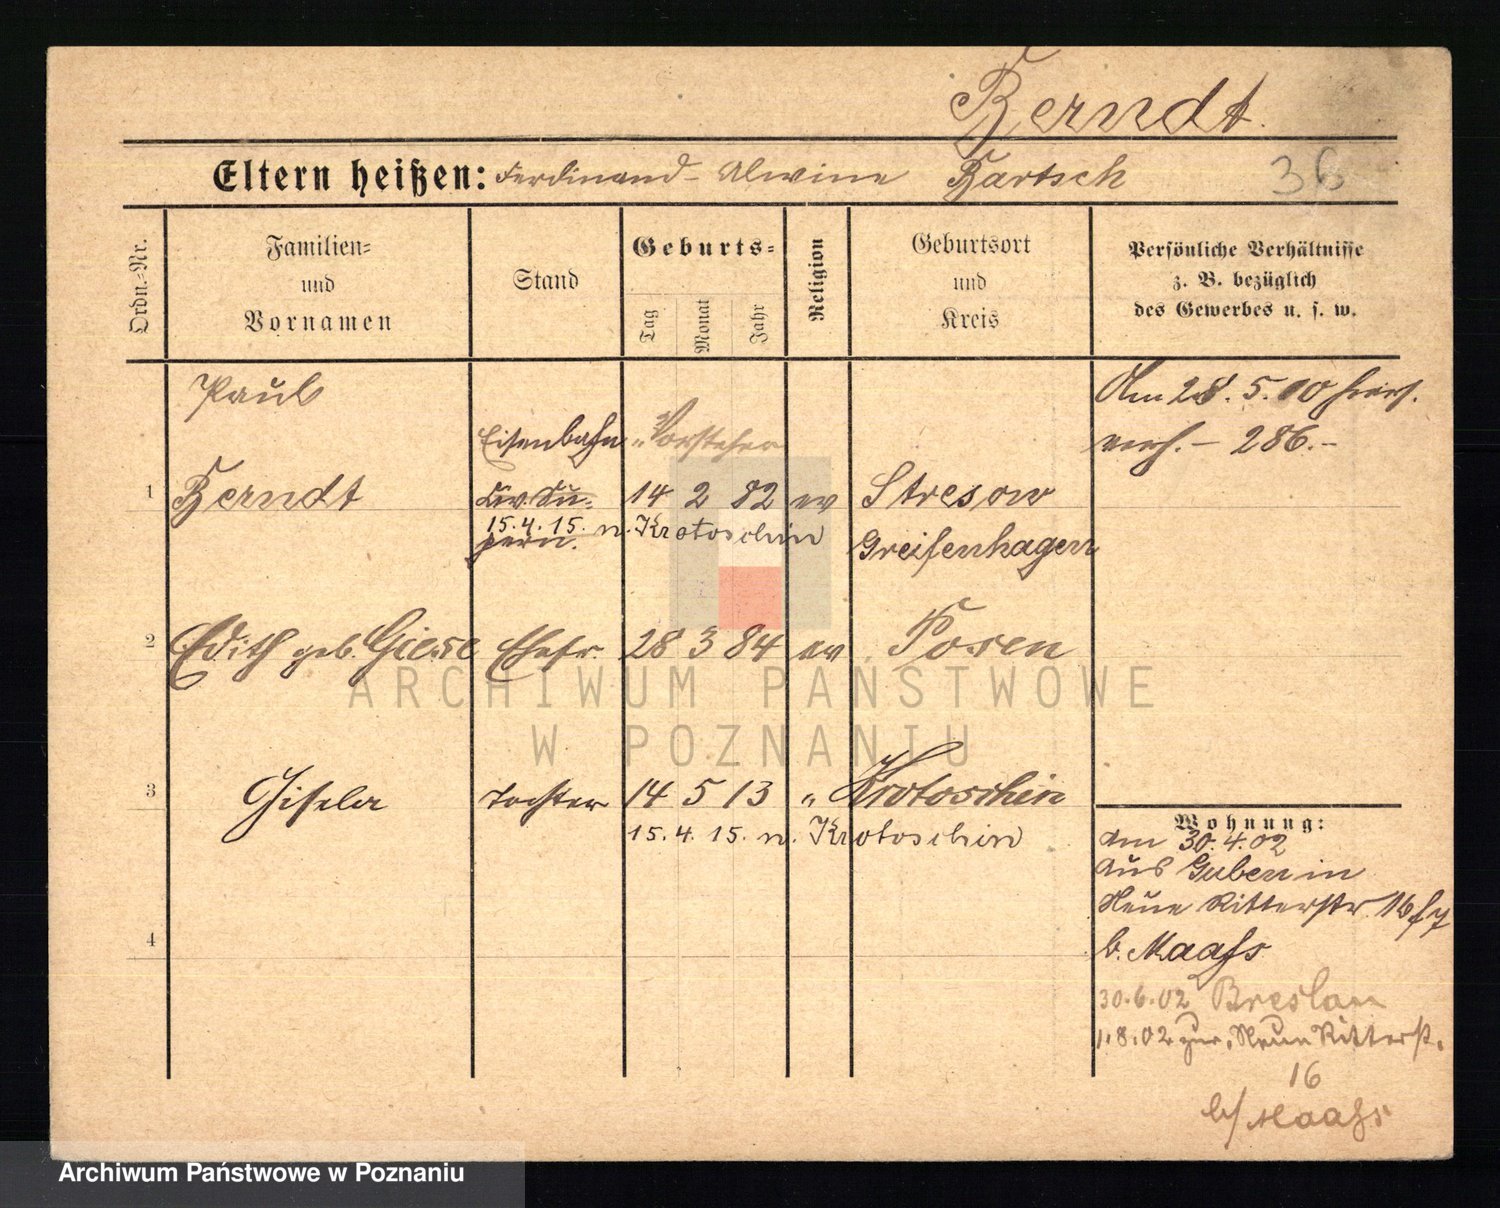 Berndt.
Eltern heißen: Ferdinand - Alwine Bartsch
36
Ordn.=Nr.
Familien=
und
Vornamen
Stand
Geburts=
Tag
Monat
Jahr
Religion
Geburtsort
und
Kreis
Persönliche Verhältnisse
z. B. bezüglich
des Gewerbes u. s. w.
Paul
Eisenbahn „Vorsteher
1 Berndt 14 2 82 ev Stresow
15.4.15. n. Krotoschin
Greifenhagen
Am 28.5.10 hier
verh. - 286.-
2 Edith geb. Giese Ehefr. 28 3 84 ev Posen
3 Gisela Tochter 14 5 13 „ Krotoschin
15.4.15. n. Krotoschin
4
Wohnung:
am 30.4.02
aus Guben in
Neue Ritterstr. 16
b. Maaß
30.6.02 Breslau
1.8.02 zur. Neue Ritterst.
16
b/ Maaß
ARCHIWUM PAŃSTWOWE
W POZNANIU
Archiwum Państwowe w Poznaniu